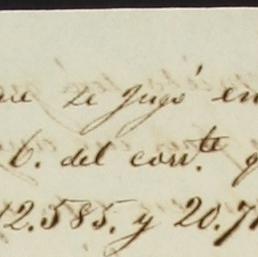 se jugó en
6. del corr.te
12.585. y 20.7